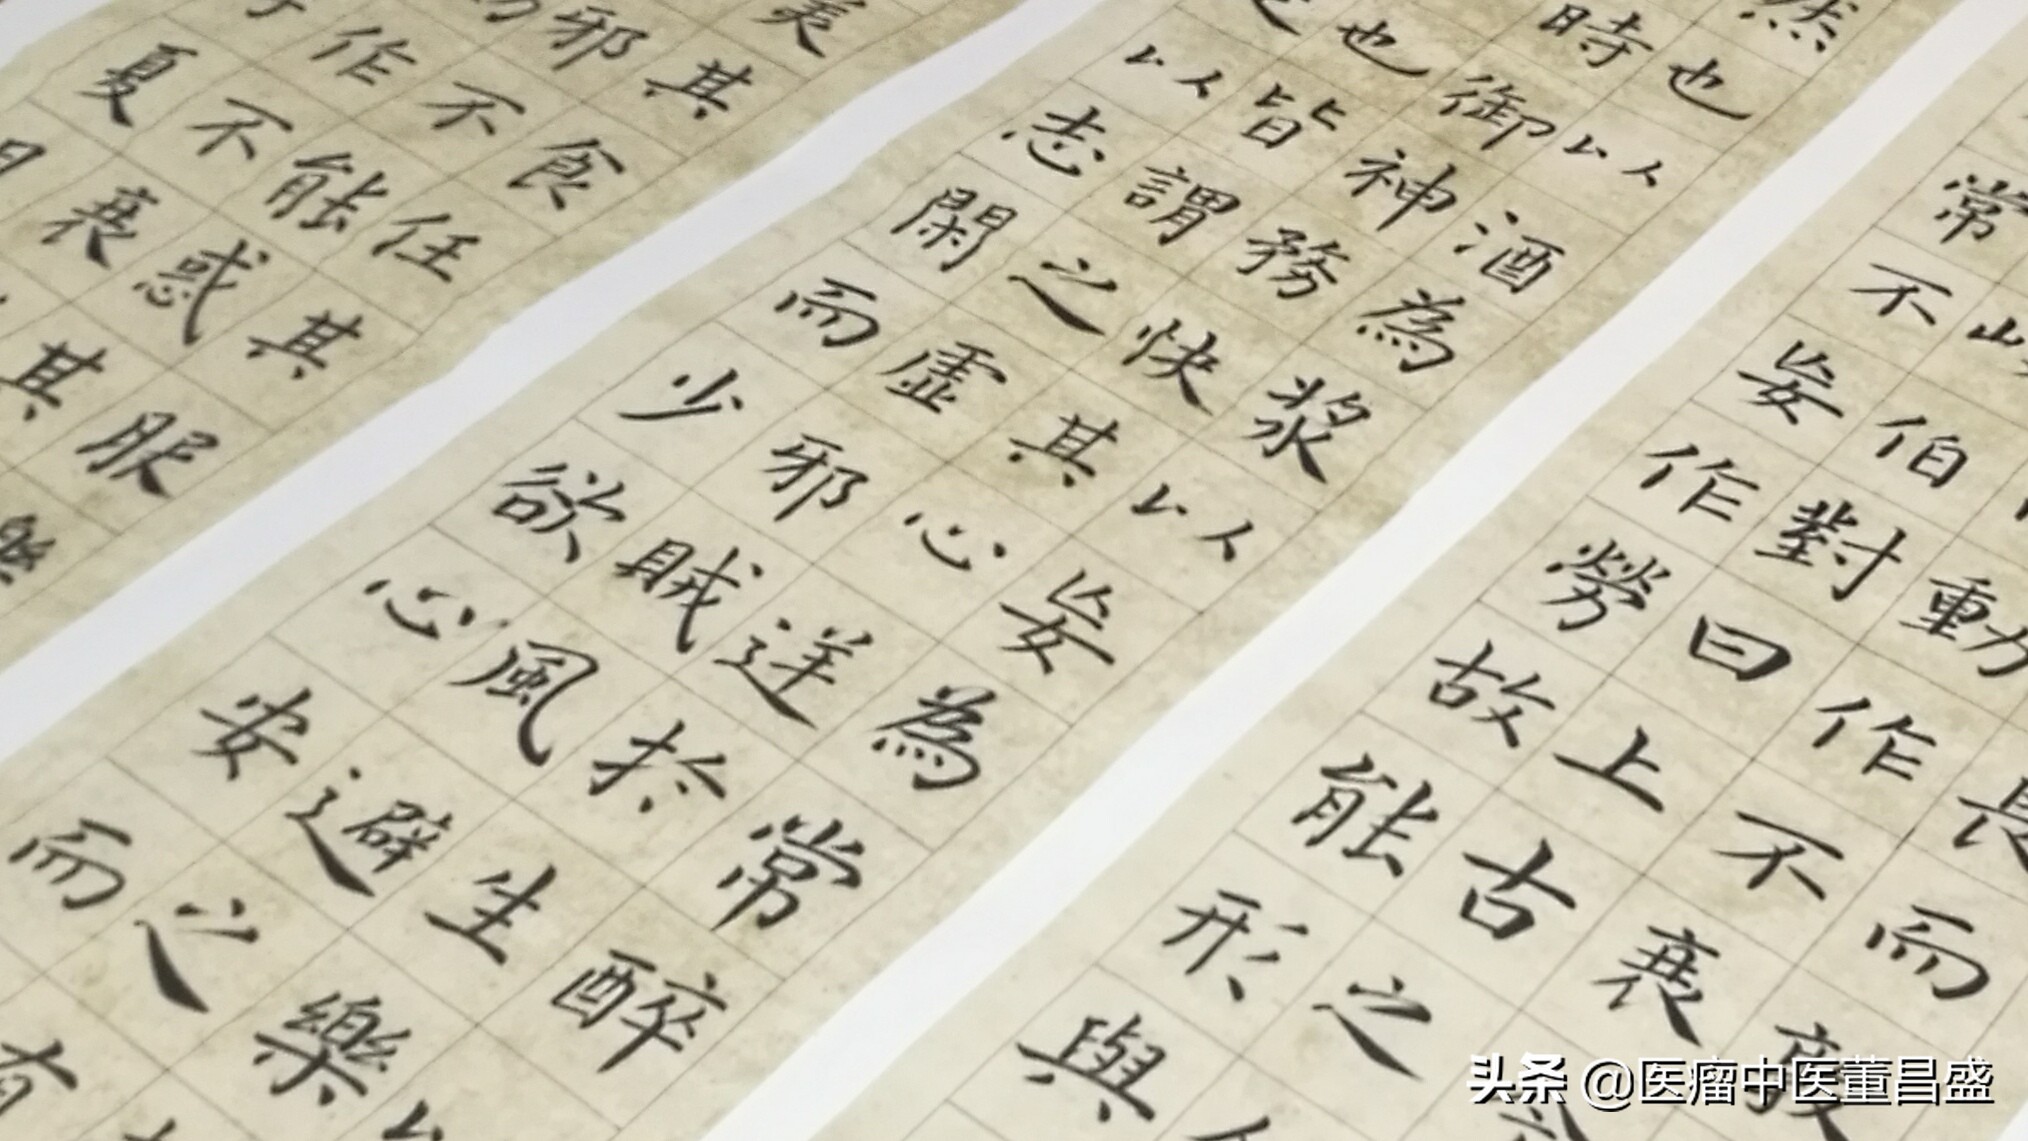 動作不衰
岐伯對曰上古之
常不妄作勞故能形與
然也以酒為漿以妄為常醉
時御神務快其心逆於生樂以
也皆謂之虛邪賊風避之
以志閑而少欲心安而有
美其食任其服樂
邪不能惑其
作不衰
头条 @医瘤中医董昌盛